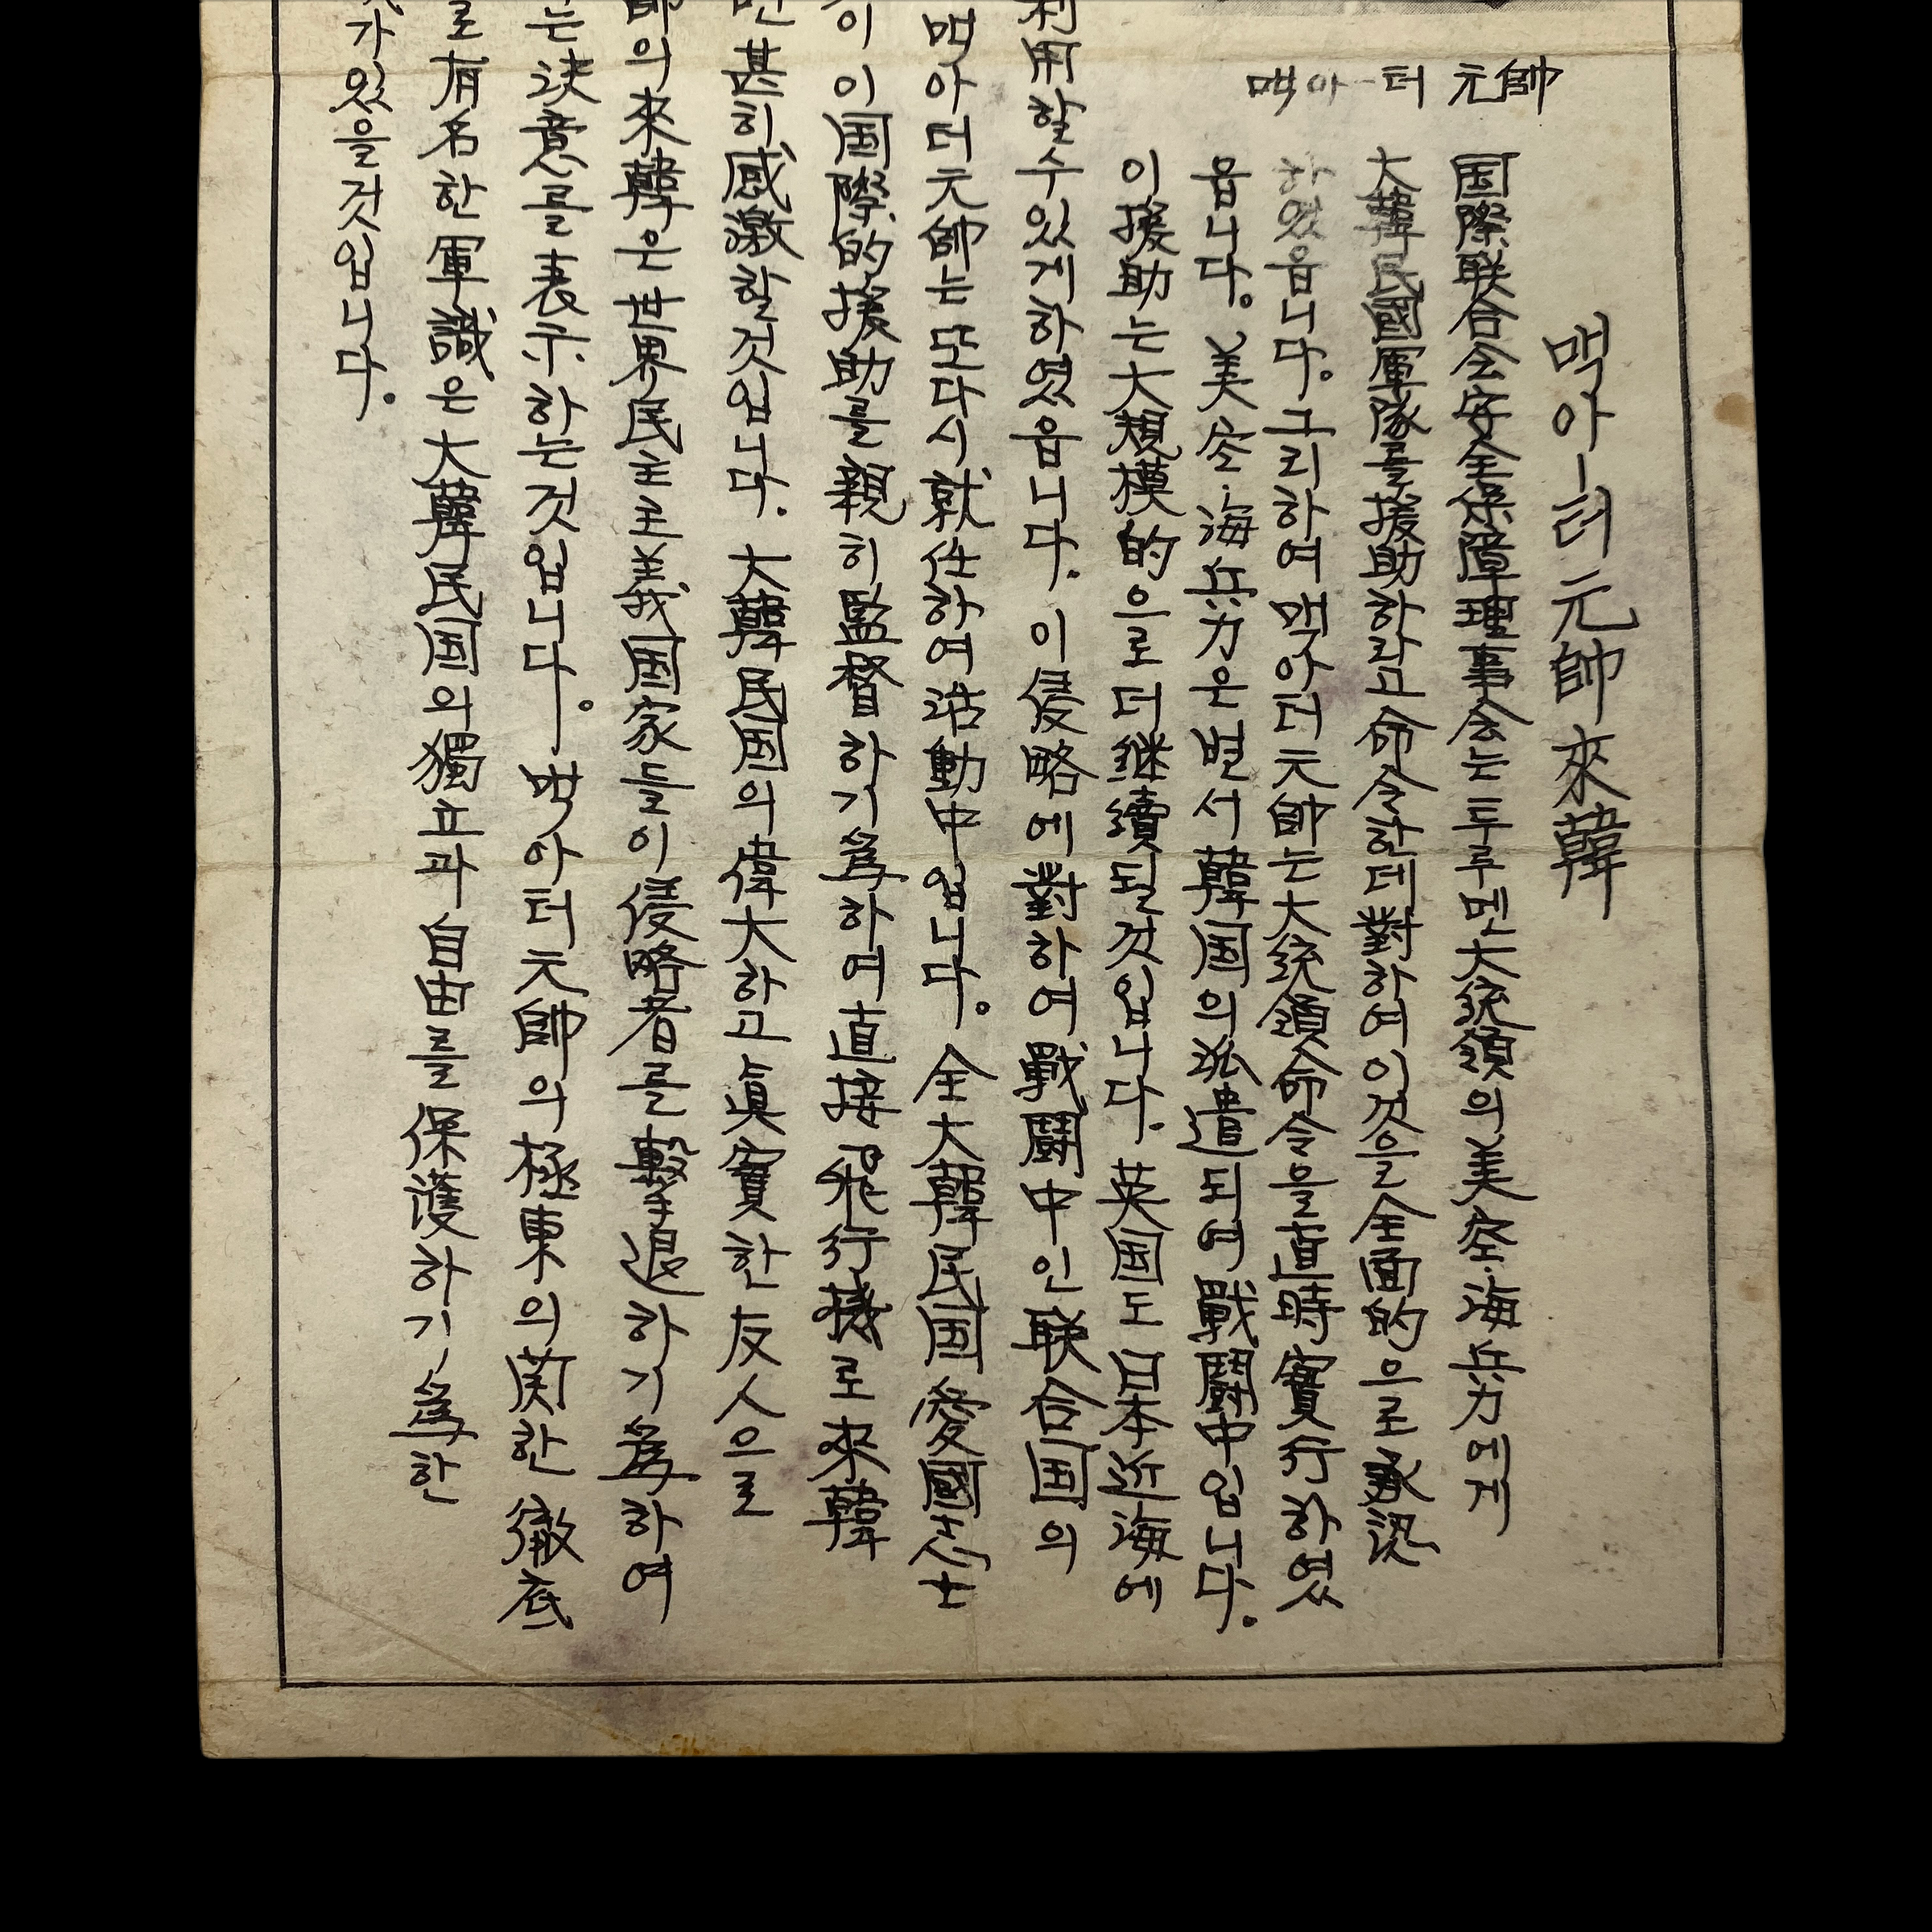 맥아ー터 元帥
맥아ー터 元帥 來韓
国際联合会安全保障理事会는 투루멘 大統領의 美空·海兵力에게
大韓民國軍隊를 援助하라고 命令한데 對하여 이것을 全面的으로 承認
하였읍니다. 그리하여 맥아터 元帥는 大統領命令을 直時 實行하였
읍니다. 美空·海兵力은 벌서 韓国의 派遣되여 戰鬪中입니다.
이 援助는 大規模的으로 더 継續될것입니다. 英国도 日本近海에
利用할수있게하였읍니다. 이 侵略에 對하여 戰鬪中인 联合国의
맥아더 元帥는 또다시 就任하여 活動中입니다. 全大韓民国 愛國志士
이 国際的 援助를 親히 監督하기 爲하여 直接 飛行機로 來韓
甚히 感激할것입니다. 大韓民国의 偉大하고 眞實한 友人으로
帥의 來韓은 世界民主主義国家들이 侵略者를 擊退하기 爲하여
는 決意를 表示하는것입니다. 맥아터 元帥의 極東의 関한 徹底
로 有名한 軍識은 大韓民国의 獨立과 自由를 保護하기 爲한
가 있을것입니다.